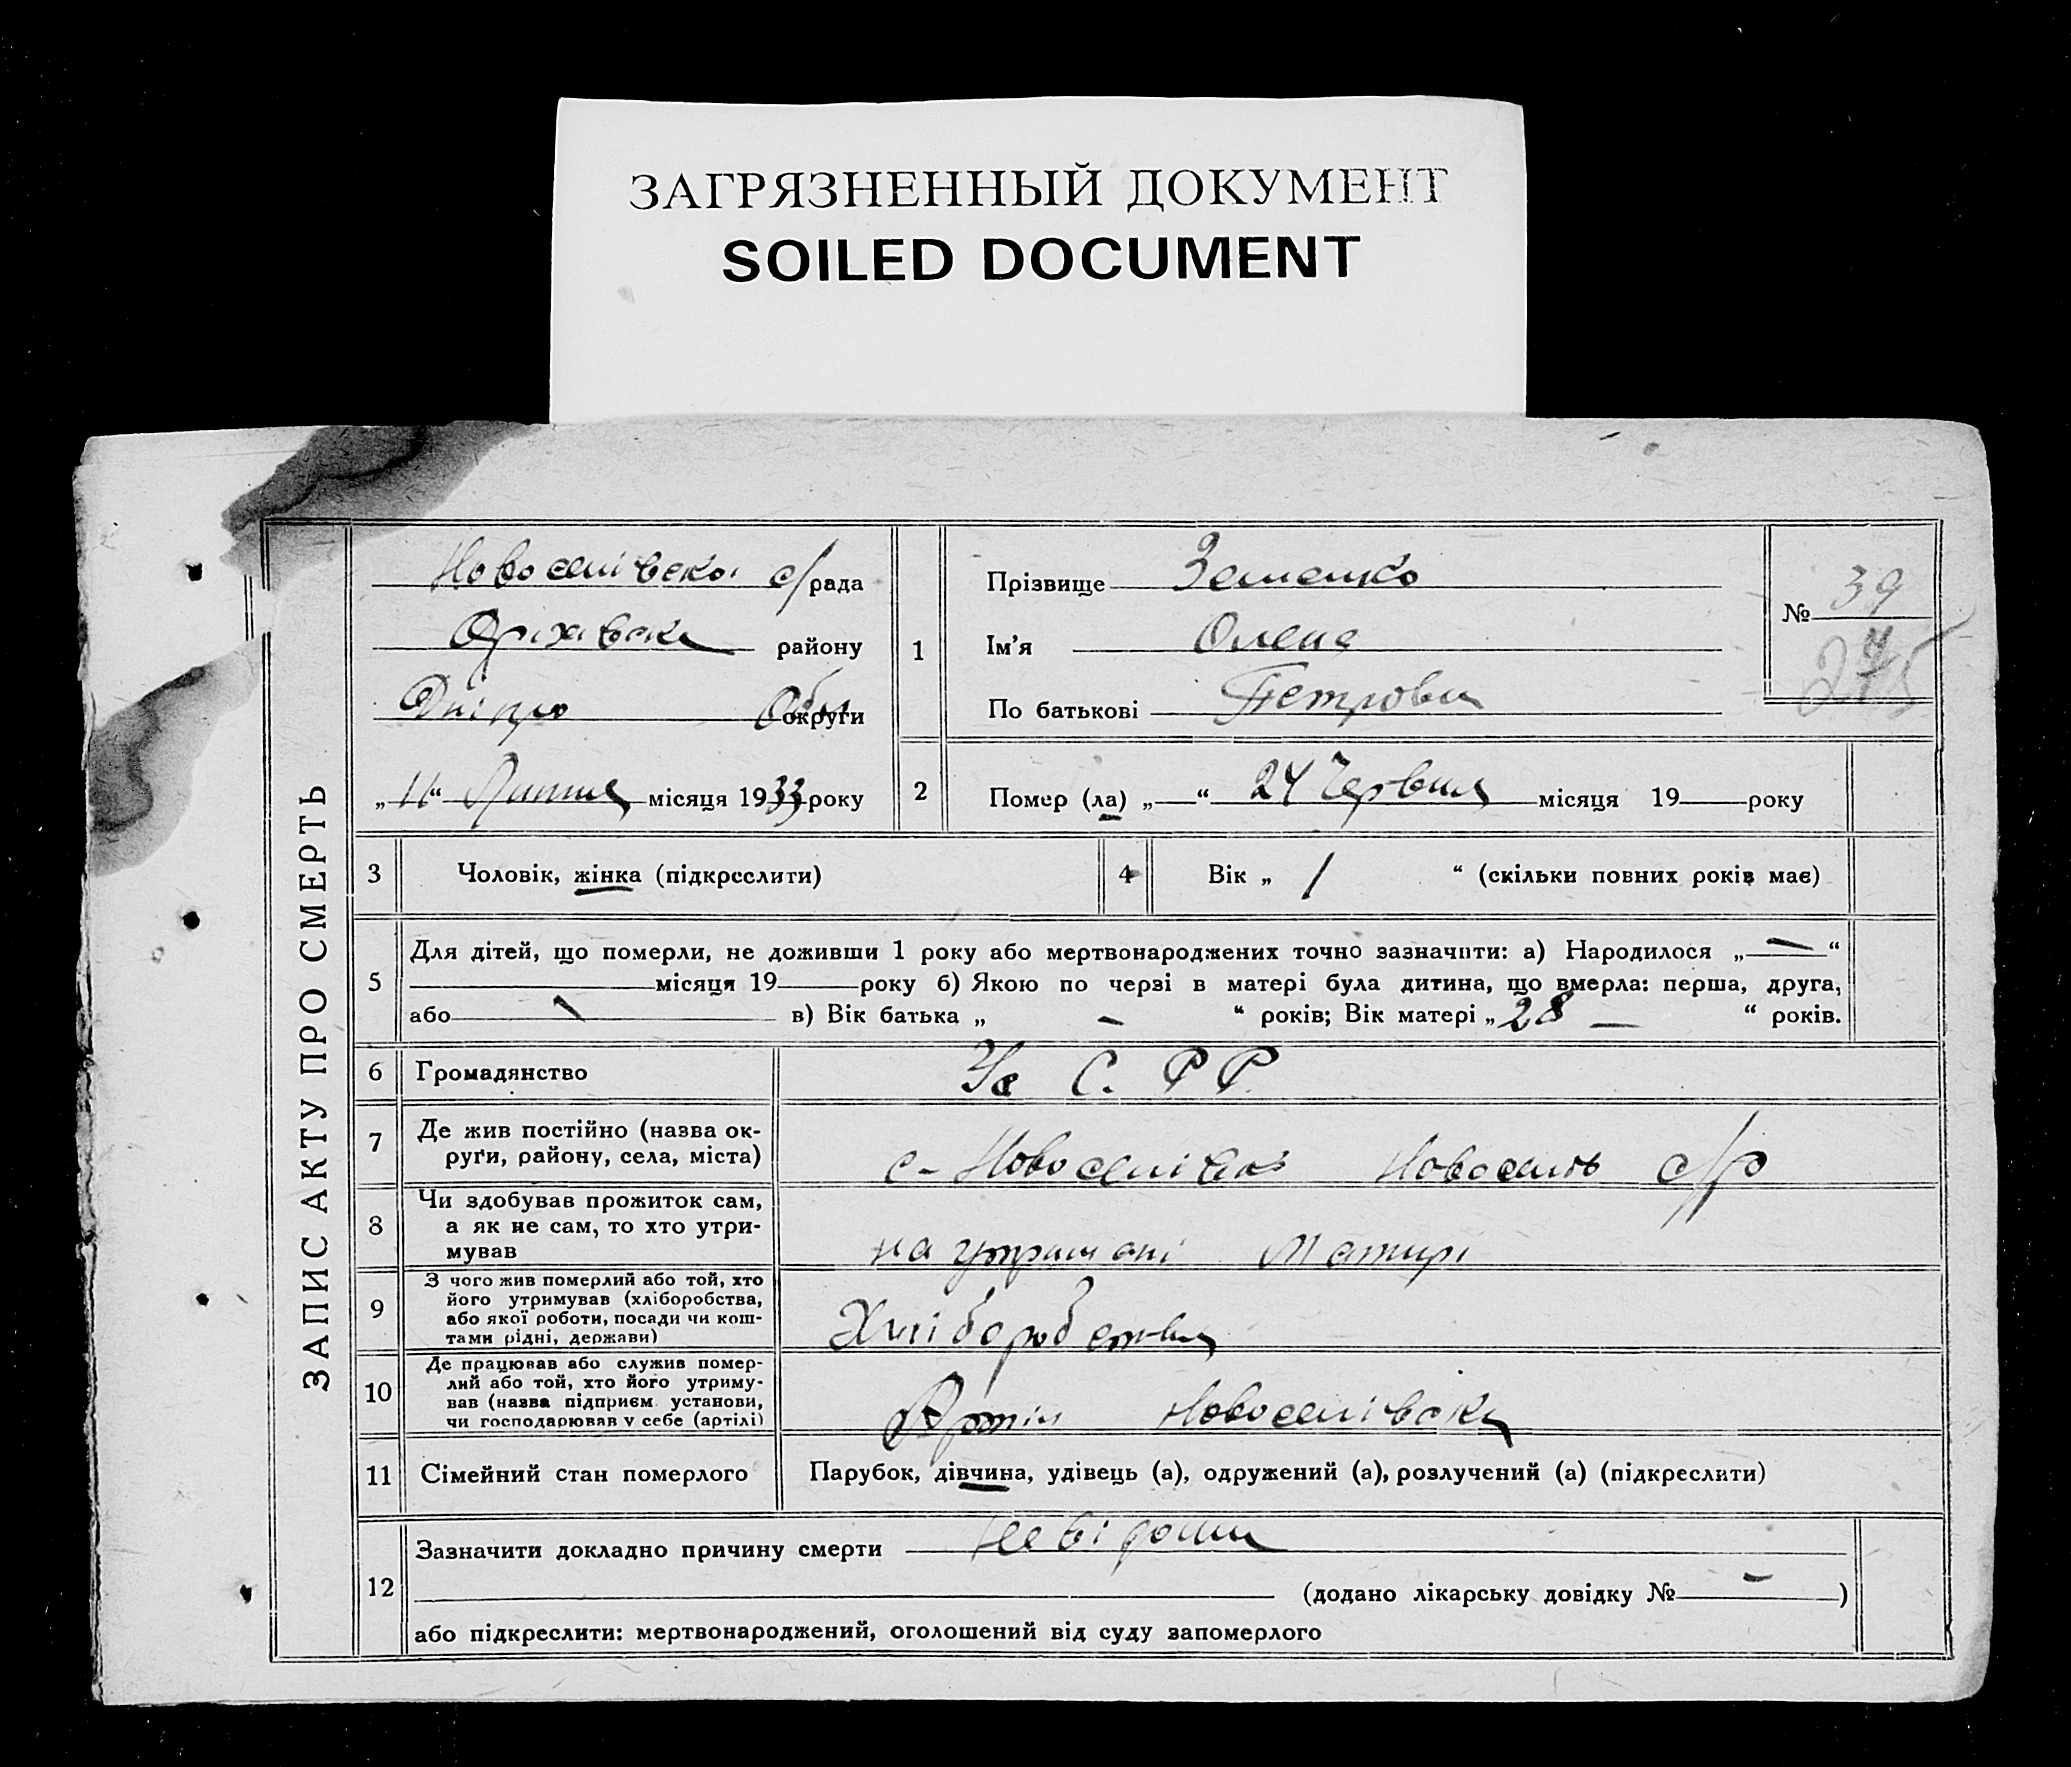 ЗАГРЯЗНЕННЫЙ ДОКУМЕНТ
SOILED DOCUMENT
ЗАПИС АКТУ ПРО СМЕРТЬ
Новоселівської с/рада
району
Дніпро Обл округи
„11“ Липня місяця 1933 року
1
Прізвище
Ім'я Олена
По батькові Петровн
№ 39
275
2 Помер (ла) „ “ 24 Червня місяця 19 року
3 Чоловік, жінка (підкреслити)
4 Вік „ 1 “ (скільки повних років має)
5 Для дітей, що померли, не доживши 1 року або мертвонароджених точно зазначити: а) Народилося „—“
місяця 19 року б) Якою по черзі в матері була дитина, що вмерла: перша, друга,
або в) Вік батька „ – “ років; Вік матері „ 28 – “ років.
6 Громадянство С. Р Р
7 Де жив постійно (назва ок-
руги, району, села, міста)
с- Новоселівка Новосел с/р
8 Чи здобував прожиток сам,
а як не сам, то хто утри-
мував
на утримані Матирі
9 З чого жив померлий або той, хто
його утримував (хліборобства,
або якої роботи, посади чи кош-
тами рідні, держави)
Хліборобства
10 Де працював або служив помер-
лий або той, хто його утриму-
вав (назва підприєм. установи,
чи господарював у себе (артілі)
Артіл Новоселівка
11 Сімейний стан померлого
Парубок, дівчина, удівець (а), одружений (а), розлучений (а) (підкреслити)
12 Зазначити докладно причину смерти Невідома
(додано лікарську довідку № – )
або підкреслити: мертвонароджений, оголошений від суду запомерлого